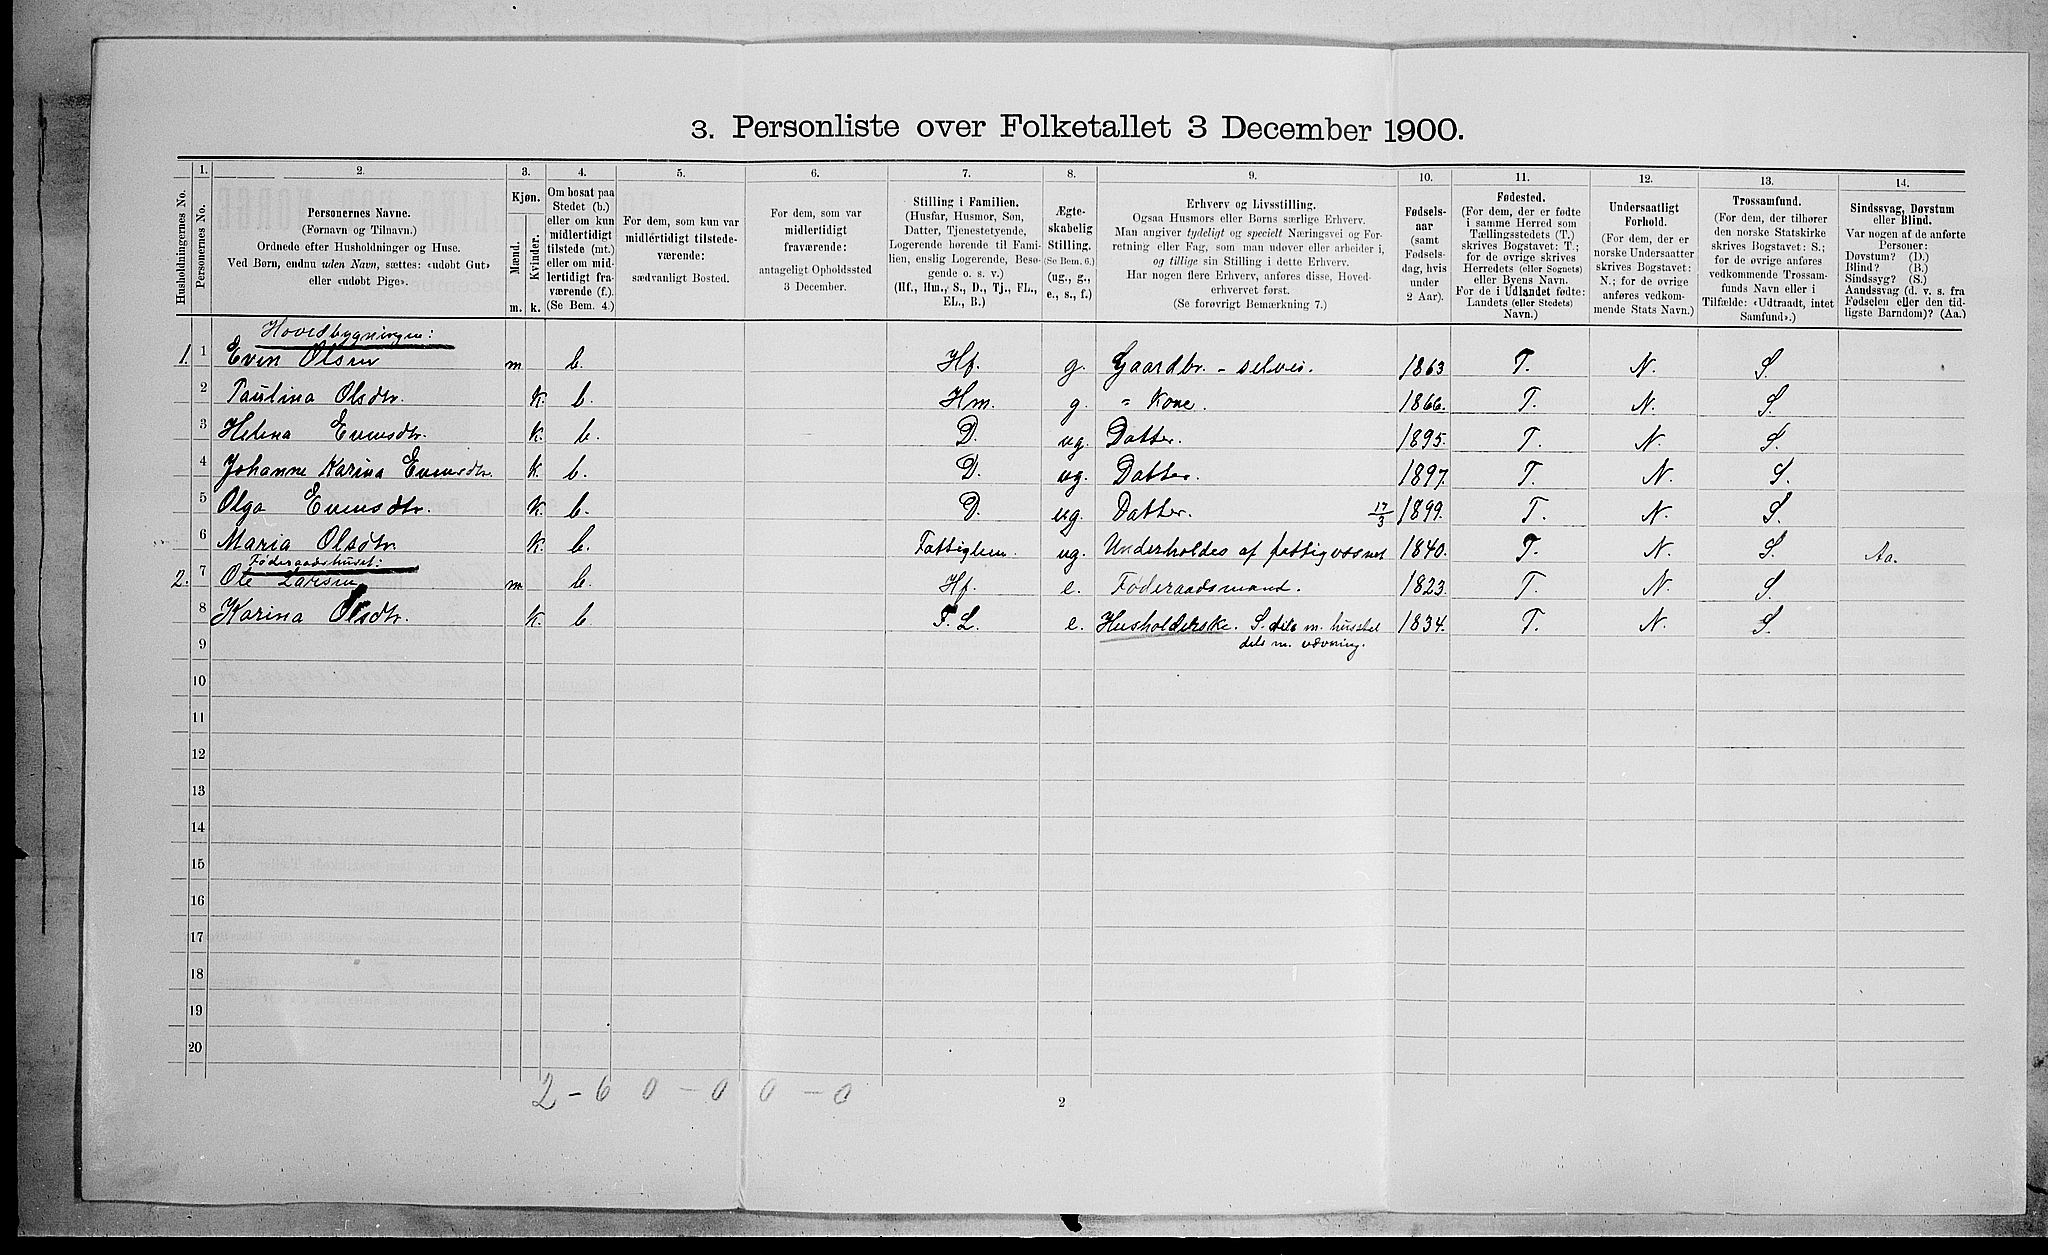 3. Personliste over Folketallet 3 December 1900.
Husholdningernes No.
1.
Personernes No.
2.
Personernes Navne.
(Fornavn og Tilnavn.)
Ordnede efter Husholdninger og Huse.
Ved Børn, endnu uden Navn, sættes: «udøbt Gut»
eller «udøbt Pige».
3.
Kjøn.
Mænd.
Kvinder.
m. k.
4.
Om bosat paa
Stedet (b.)
eller om kun
midlertidigt
tilstede (mt.)
eller om mid-
lertidigt fra-
værende (f.).
(Se Bem. 4.)
5.
For dem, som kun var
midlertidigt tilstede-
værende:
sædvanligt Bosted.
6.
For dem, som var
midlertidigt
fraværende:
antageligt Opholdssted
3 December.
7.
Stilling i Familien.
(Husfar, Husmor, Søn,
Datter, Tjenestetyende,
Logerende hørende til Fami-
lien, enslig Logerende, Besø-
gende o. s. v.)
(Hf., Hm., S., D., Tj., FL.,
EL., B.)
8.
Ægte-
skabelig
Stilling.
(Se Bem. 6.)
(ug., g.,
e., s., f.)
9.
Erhverv og Livsstilling.
Ogsaa Husmors eller Børns særlige Erhverv.
Man angiver tydeligt og specielt Næringsvei og For-
retning eller Fag, som man udøver eller arbeider i,
og tillige sin Stilling i dette Erhverv.
Har nogen flere Erhverv, anføres disse, Hoved-
erhvervet først.
(Se forøvrigt Bemærkning 7.)
10.
Fødsels-
aar
(samt
Fødsels-
dag, hvis
under
2 Aar).
11.
Fødested.
(For dem, der er fødte
i samme Herred som
Tællingsstedets (T.)
skrives Bogstavet: T.;
for de øvrige skrives
Herredets (eller Sognets)
eller Byens Navn.
For de i Udlandet fødte:
Landets (eller Stedets)
Navn.)
12.
Undersaatligt
Forhold.
(For dem, der er
norske Undersaatter
skrives Bogstavet:
N.; for de øvrige
anføres vedkom-
mende Stats Navn.)
13.
Trossamfund.
(For dem, der tilhører
den norske Statskirke
skrives Bogstavet: S.;
for de øvrige anføres
vedkommende Trossam-
funds Navn eller i
Tilfælde: «Udtraadt, intet
Samfund».)
14.
Sindssvag, Døvstum
eller Blind.
Var nogen af de anførte
Personer:
Døvstum? (D.)
Blind? (B.)
Sindssyg? (S.)
Aandssvag (d. v. s. fra
Fødselen eller den tid-
ligste Barndom)? (Aa.)
Hovedbygningen:
1. 1 Even Olsen m b. Hf. g. Gaardbr. - selvei. 1863 T. N. S.
2 Paulina Olsdtr. K. b. Hm. g. " Kone. 1866. T. N. S.
3 Helena Evensdtr. K. b. D. ug. Datter. 1895. T. N. S.
4 Johanne Karina Evensdtr. K. b. D. ug. Datter. 1897. T. N. S.
5 Olga Evensdtr. K. b. D. ug. Datter. 17/3 1899. T. N. S.
6 Maria Olsdtr. K. b. Fattiglem. ug. Underholdes af fattigvæsnet 1840. T. N. S. Aa.
Føderaadshuset:
2. 7 Ole Larsen m b. Hf. e. Føderaadsmand. 1823. T. N. S.
8 Karina Olsdtr. K. b F.L. e. Husholderske. S. dels m. husstel 1834. T. N. S.
dels m. vævning.
9
10
11
12
13
14
15
16
17
18
19
20
2 - 6 0 - 0 0 - 0
2